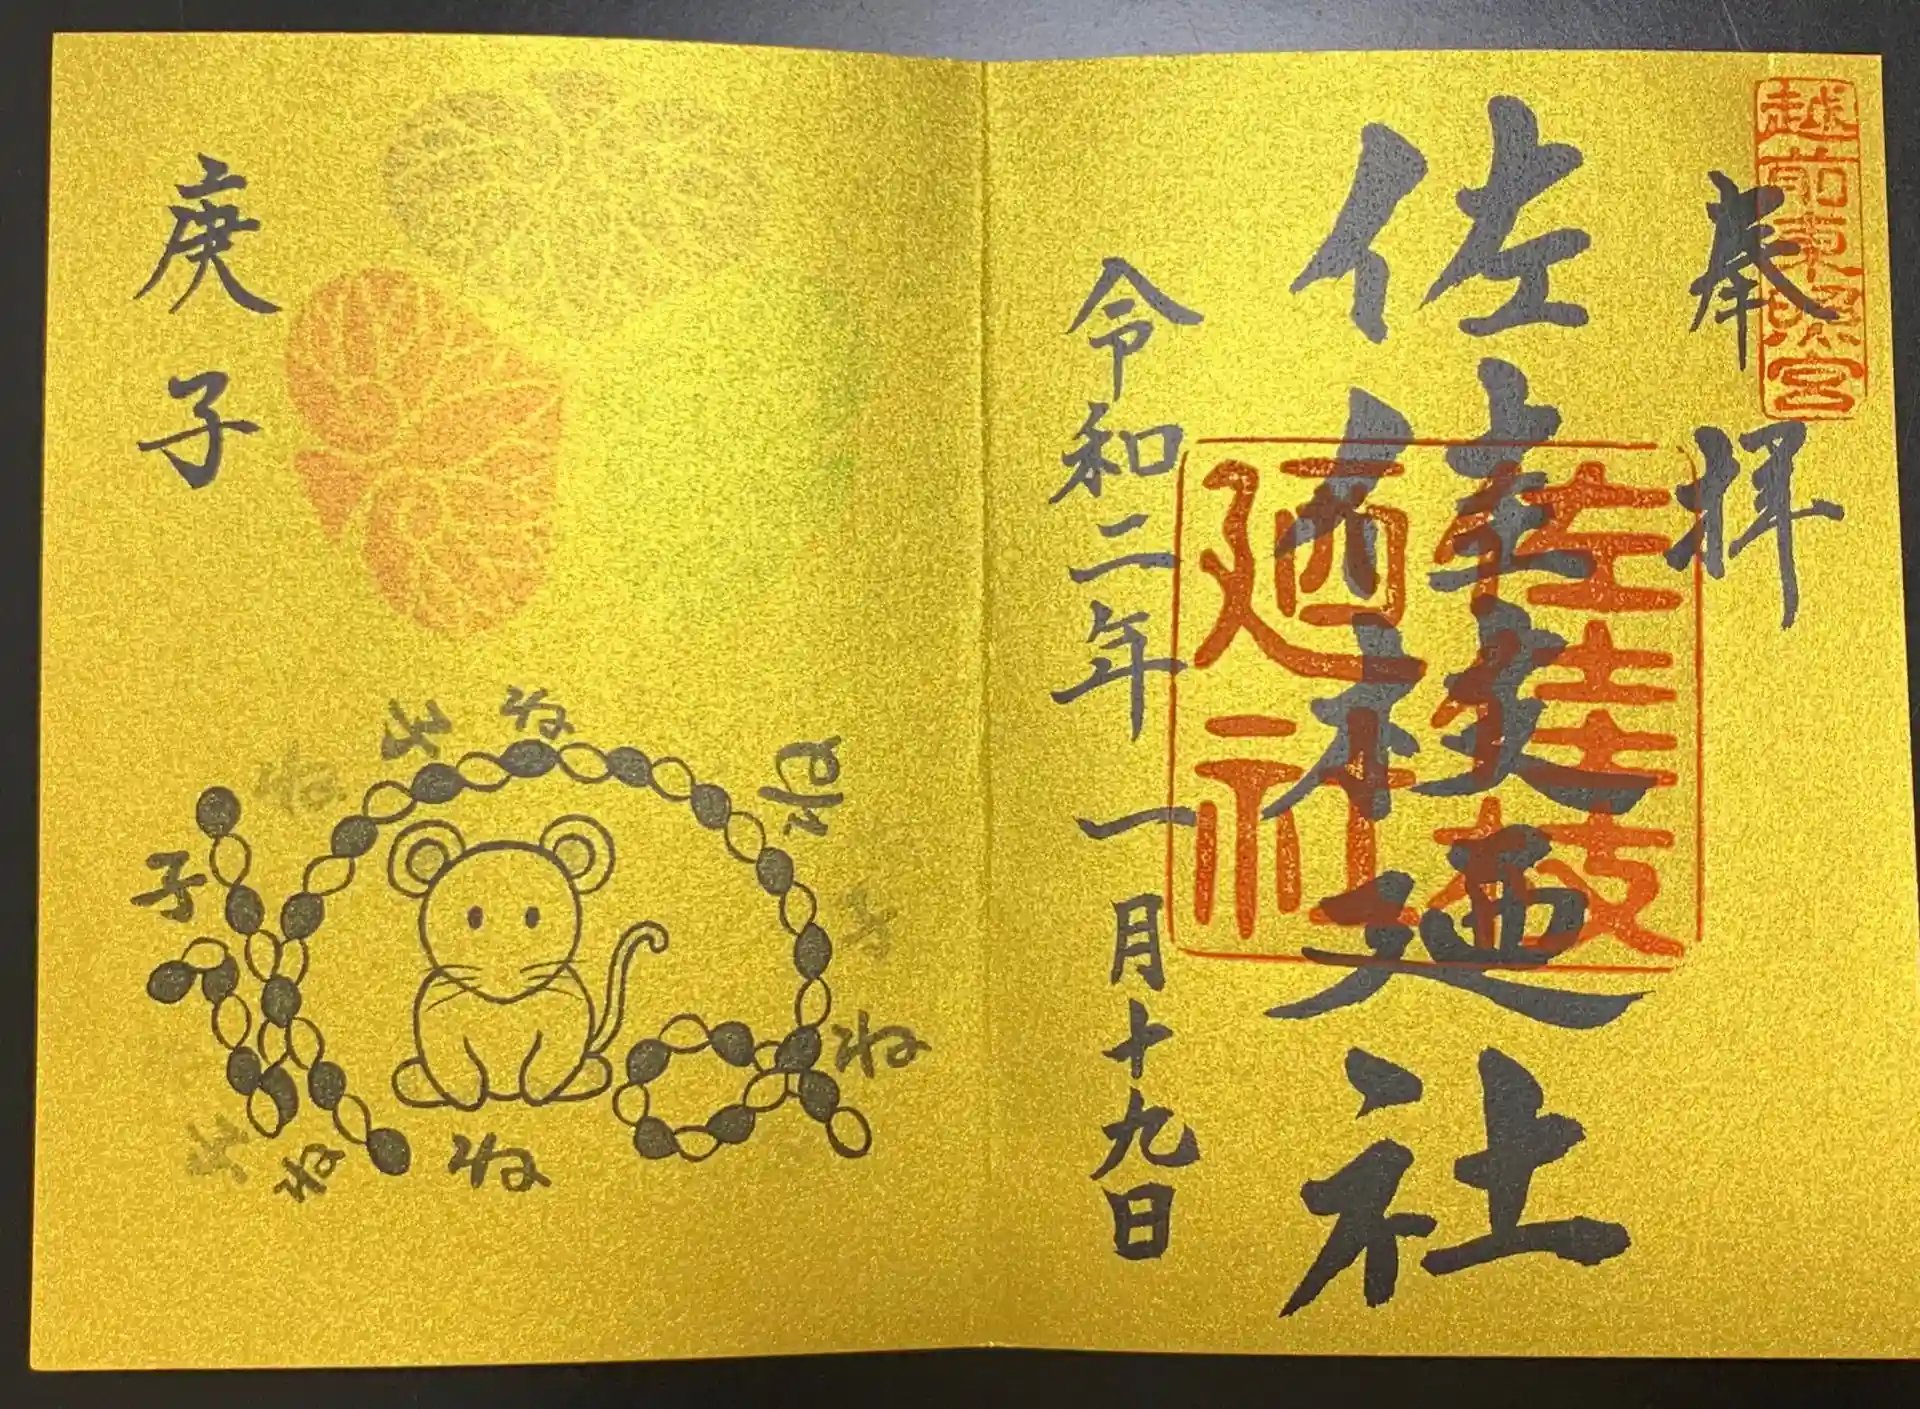 越前東照宮
奉拝
佐佳枝廼社
佐佳枝
廼社
令和二年一月十九日
庚子
子
子
ね
子
ね
ね
ね
子